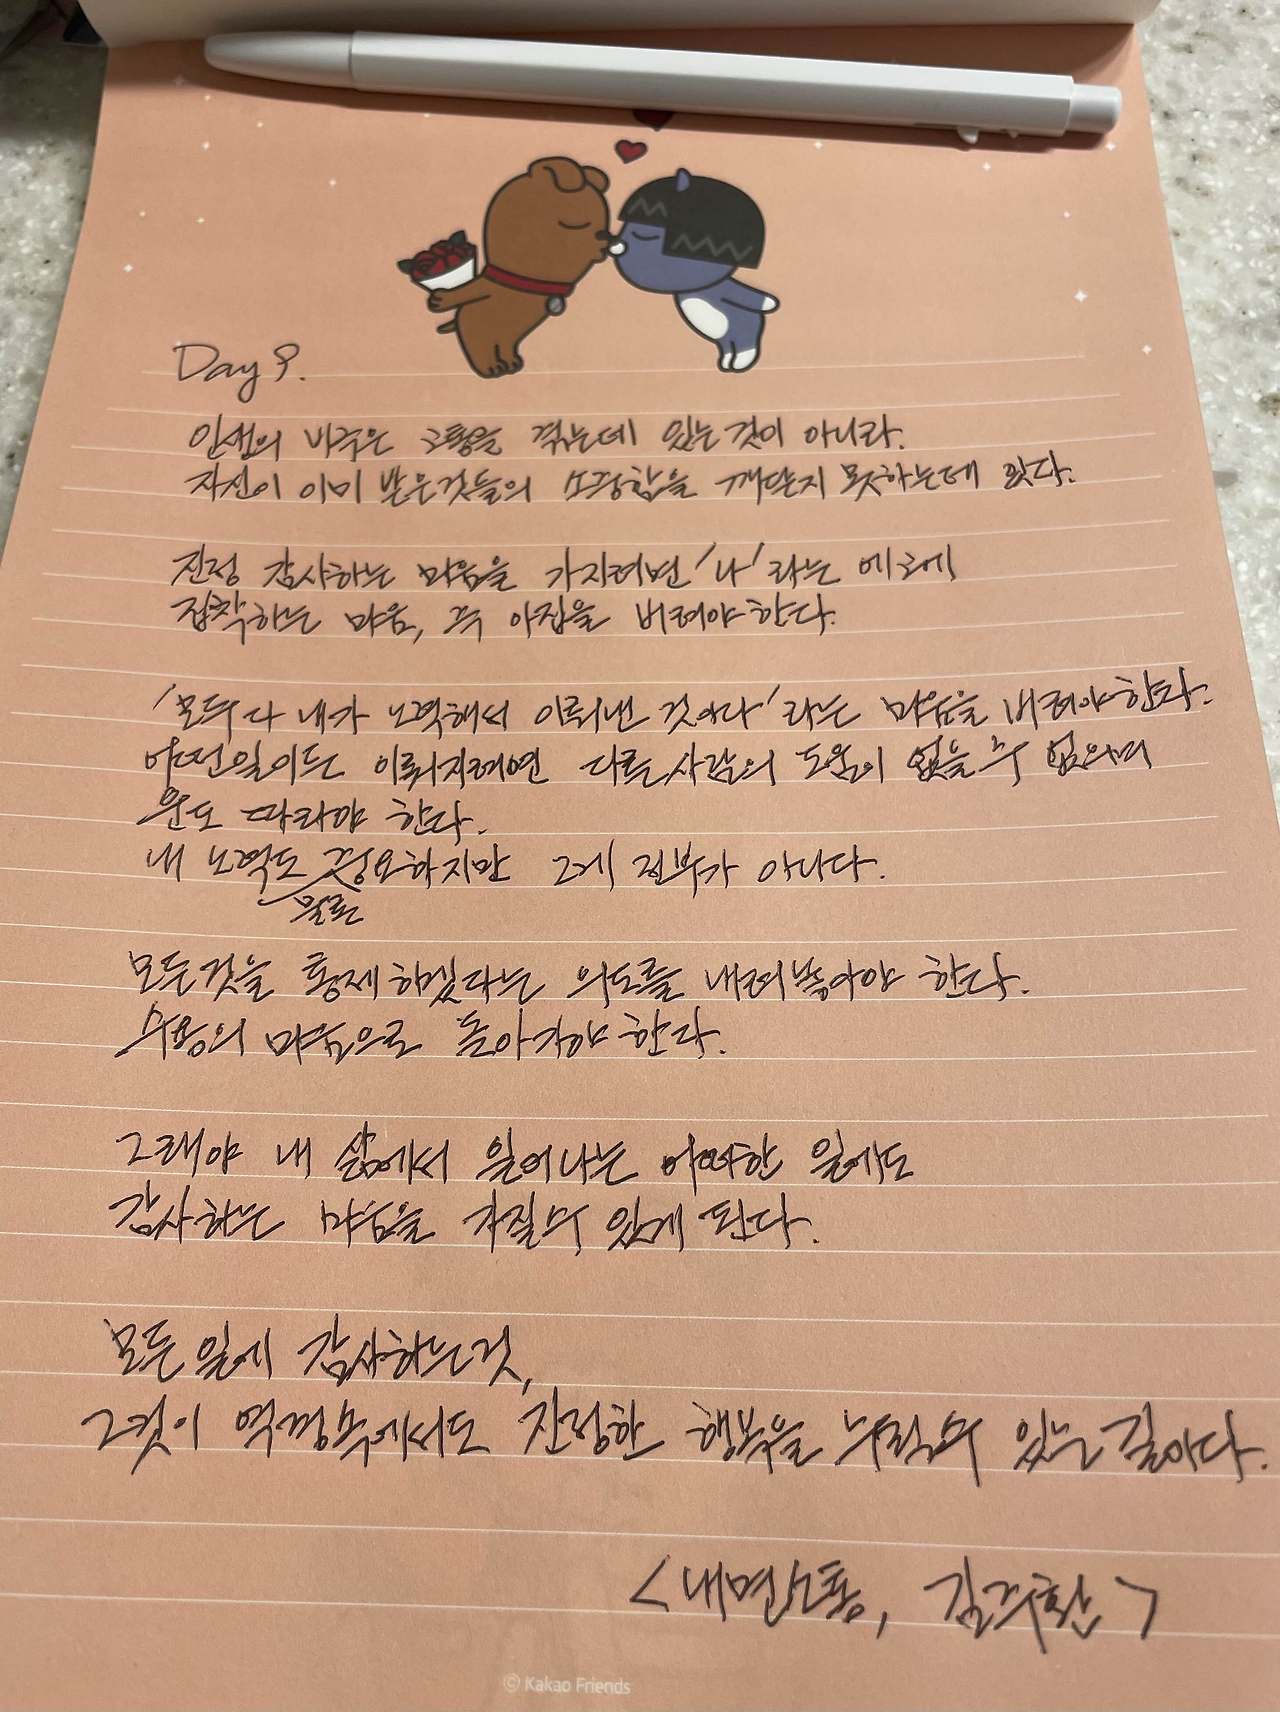 Day 9.
인생의 비극은 고통을 겪는데 있는것이 아니라.
자신이 이미 받은것들의 소중함을 깨닫지 못하는데 있다.
진정 감사하는 마음을 가지려면 '나'라는 에고에
집착하는 마음, 즉 아집을 버려야한다.
'모두 다 내가 노력해서 이뤄낸 것이다'라는 마음을 버려야한다.
어떤일이든 이뤄지려면 다른사람의 도움이 없을 수 없으며
운도 따라야 한다.
내 노력도 물론 중요하지만 그게 전부가 아니다.
모든것을 통제하겠다는 의도를 내려놓아야 한다.
수용의 마음으로 돌아가야 한다.
그래야 내 삶에서 일어나는 어떠한 일에도
감사하는 마음을 가질수 있게 된다.
모든일에 감사하는것,
그것이 역경속에서도 진정한 행복을 누릴수 있는길이다.
<내면소통, 김주환>
© Kakao Friends